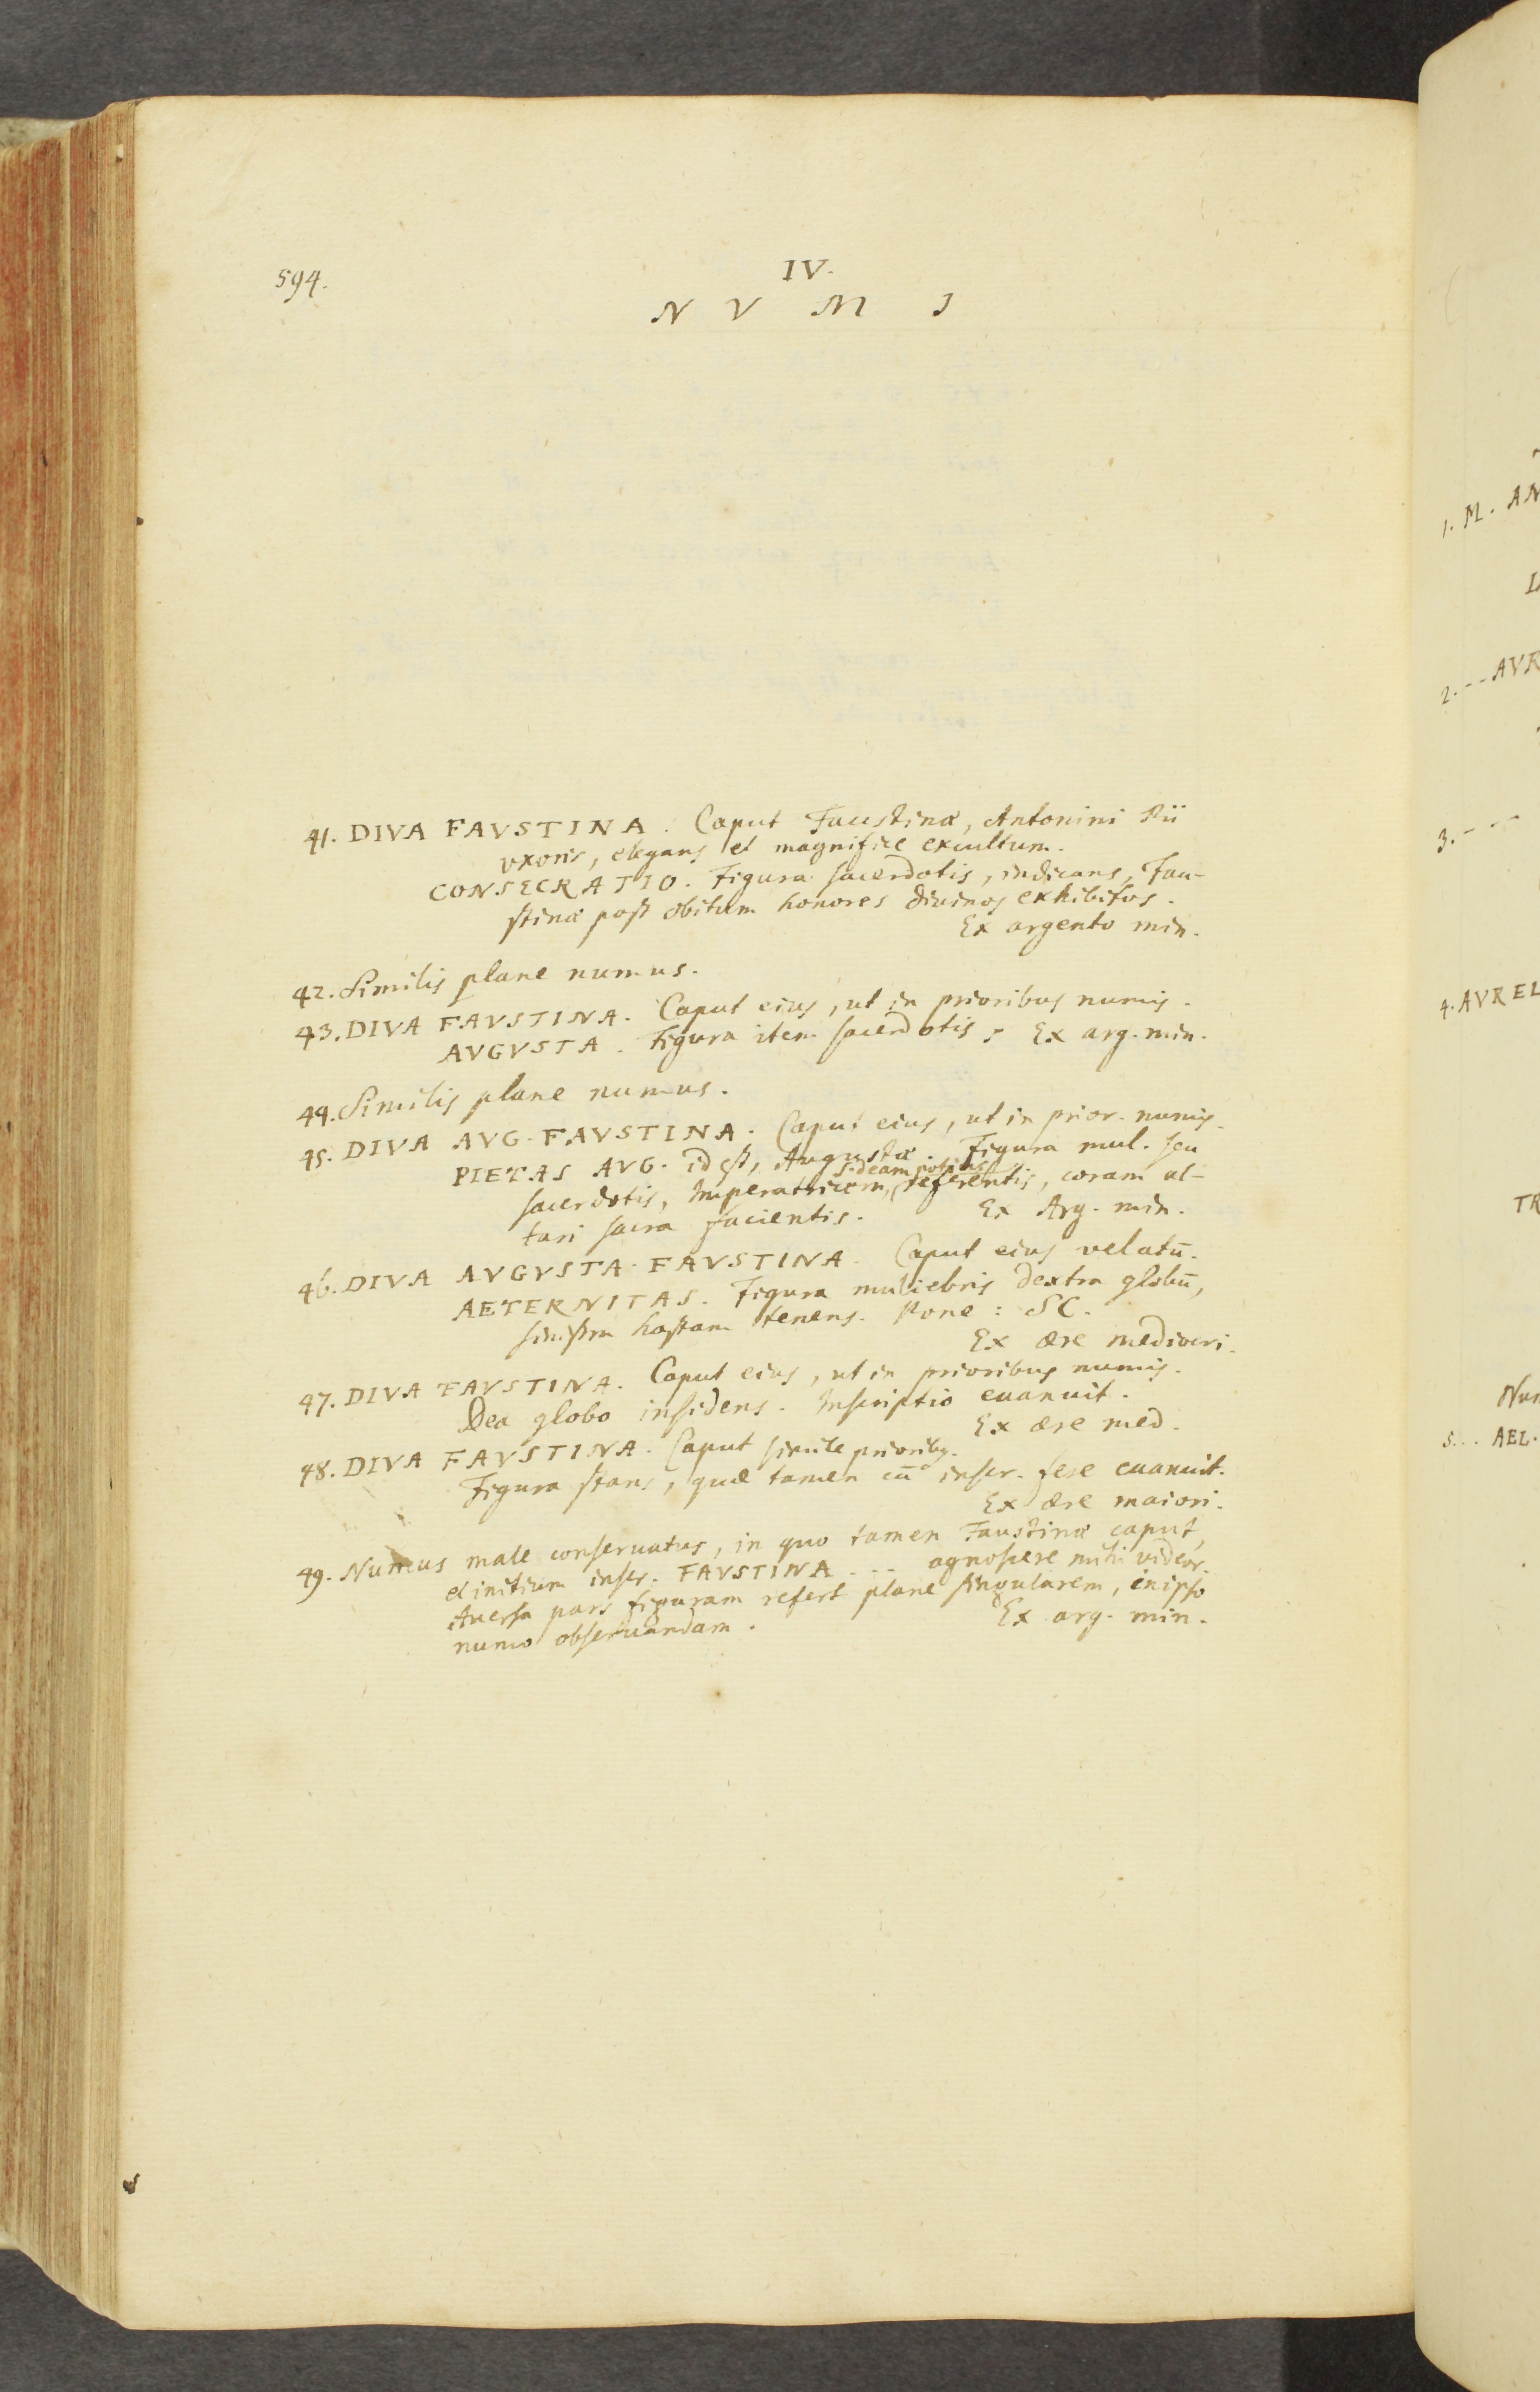 594.
IV.
N V M I
41. DIVA FAVSTINA. Caput Faustinæ, Antonini Pii
vxoris, elegans et magnifice excultum.
CONSECRATIO. Figura sacerdotis, indicans, Fau-
stinæ post obitum honores diuinos exhibitos.
Ex argento min.
42. Similis plane numus.
43. DIVA FAVSTINA. Caput eius, ut in prioribus numis.
AVGVSTA. Figura item sacerdotis. Ex arg. min.
44. Similis plane numus.
45. DIVA AVG. FAVSTINA. Caput eius, ut in prior. numis.
PIETAS AVG. id est, Augustæ. Figura mul. seu
s. deam potius
sacerdotis, Imperatricem, referentis, coram al-
tari sacra facientis. Ex Arg. min.
46. DIVA AVGVSTA FAVSTINA. Caput eius velatū.
AETERNITAS. Figura muliebris dextra globū,
sinistra hastam tenens. Pone: SC.
Ex ære mediocri.
47. DIVA FAVSTINA. Caput eius, ut in prioribus numis.
Dea globo insidens. Inscriptio euanuit.
Ex ære med.
48. DIVA FAVSTINA. Caput simile prioribq.
Figura stans, quæ tamen cū inscr. fere euanuit.
Ex ære maiori.
49. Numus male conseruatus, in quo tamen Faustinæ caput,
et initium inscr. FAVSTINA ... agnoscere mihi videor.
Auersa pars figuram refert plane singularem, in ipso
numo obseruandam. Ex arg. min.
1. M. AN
2. -- AVR
3. - --
4. AVREL
TR
Num
5. .. AEL.